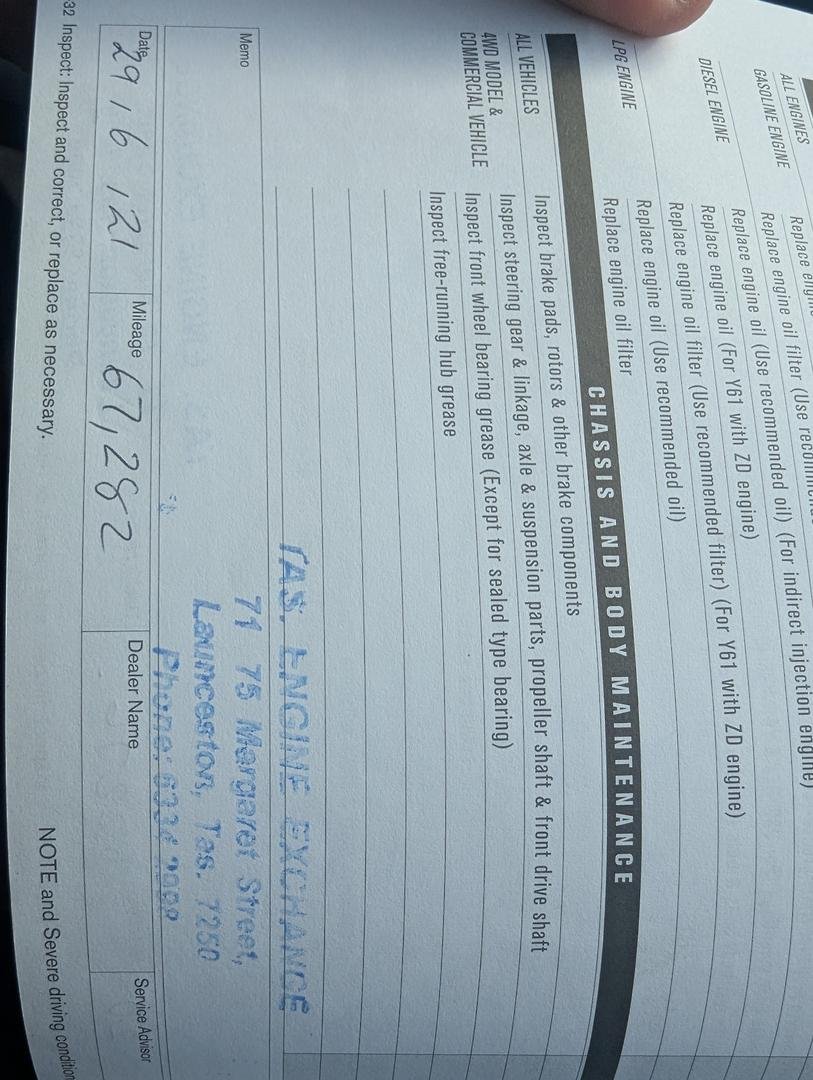 ALL ENGINES
GASOLINE ENGINE Replace engine oil filter (Use
Replace engine oil (Use recommended oil) (For indirect injection engine)
DIESEL ENGINE Replace engine oil (For Y61 with ZD engine)
Replace engine oil filter (Use recommended filter) (For Y61 with ZD engine)
Replace engine oil filter
Replace engine oil (Use recommended oil)
LPG ENGINE Replace engine oil filter
CHASSIS AND BODY MAINTENANCE
ALL VEHICLES Inspect brake pads, rotors & other brake components
Inspect steering gear & linkage, axle & suspension parts, propeller shaft & front drive shaft
4WD MODEL & Inspect front wheel bearing grease (Except for sealed type bearing)
COMMERCIAL VEHICLE Inspect free-running hub grease
TAS. ENGINE EXCHANGE
Memo 71 75 Margaret Street,
Launceston, Tas. 7250
Phone:
Date 29/6/21 Mileage 67,282 Dealer Name Service Advisor
32 Inspect: Inspect and correct, or replace as necessary. NOTE and Severe driving condition